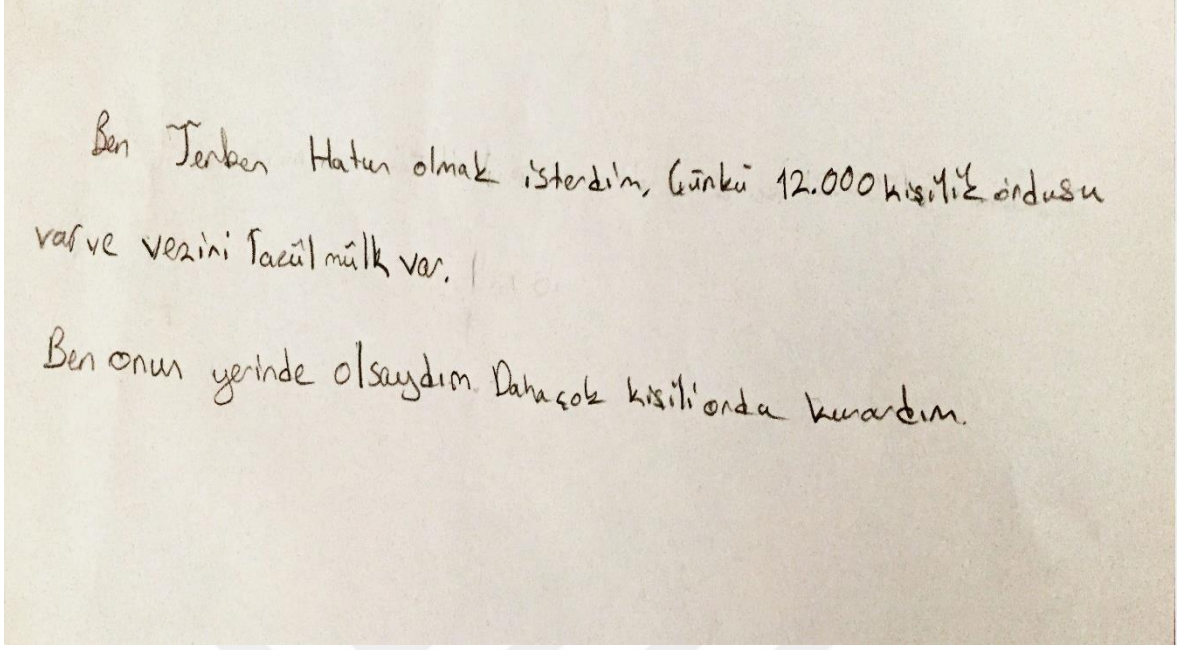 Ben Terken Hatun olmak isterdim, Çünkü 12.000 kişilik ordusu
var ve veziri Tacül mülk var.
Ben onun yerinde olsaydım Daha çok kişili ordu kurardım.